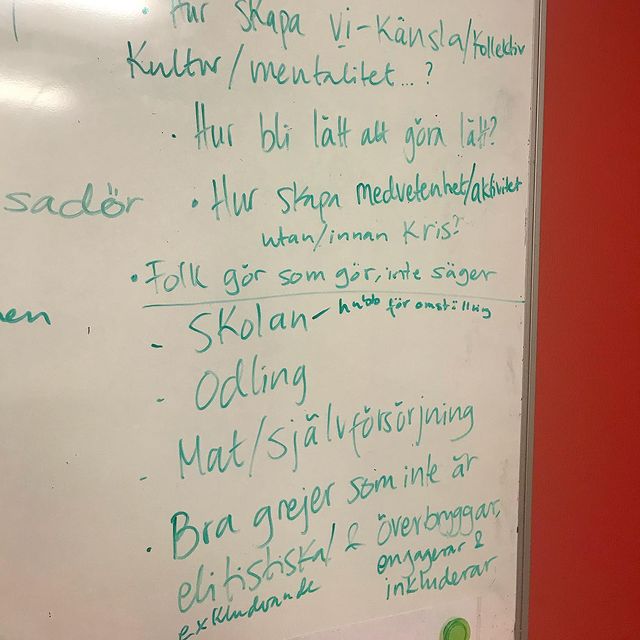 • Hur skapa vi-känsla/kollektiv
kultur/mentalitet...?
• Hur bli lätt att göra lätt?
sadör
• Hur skapa medvetenhet/aktivitet
utan/innan kris?
• Folk gör som gör, inte säger
en
- Skolan - hubb för omställning
- Odling
- Mat/självförsörjning
• Bra grejer som inte är
elitistiska/ & överbryggar,
exkluderande engagerar &
inkluderar